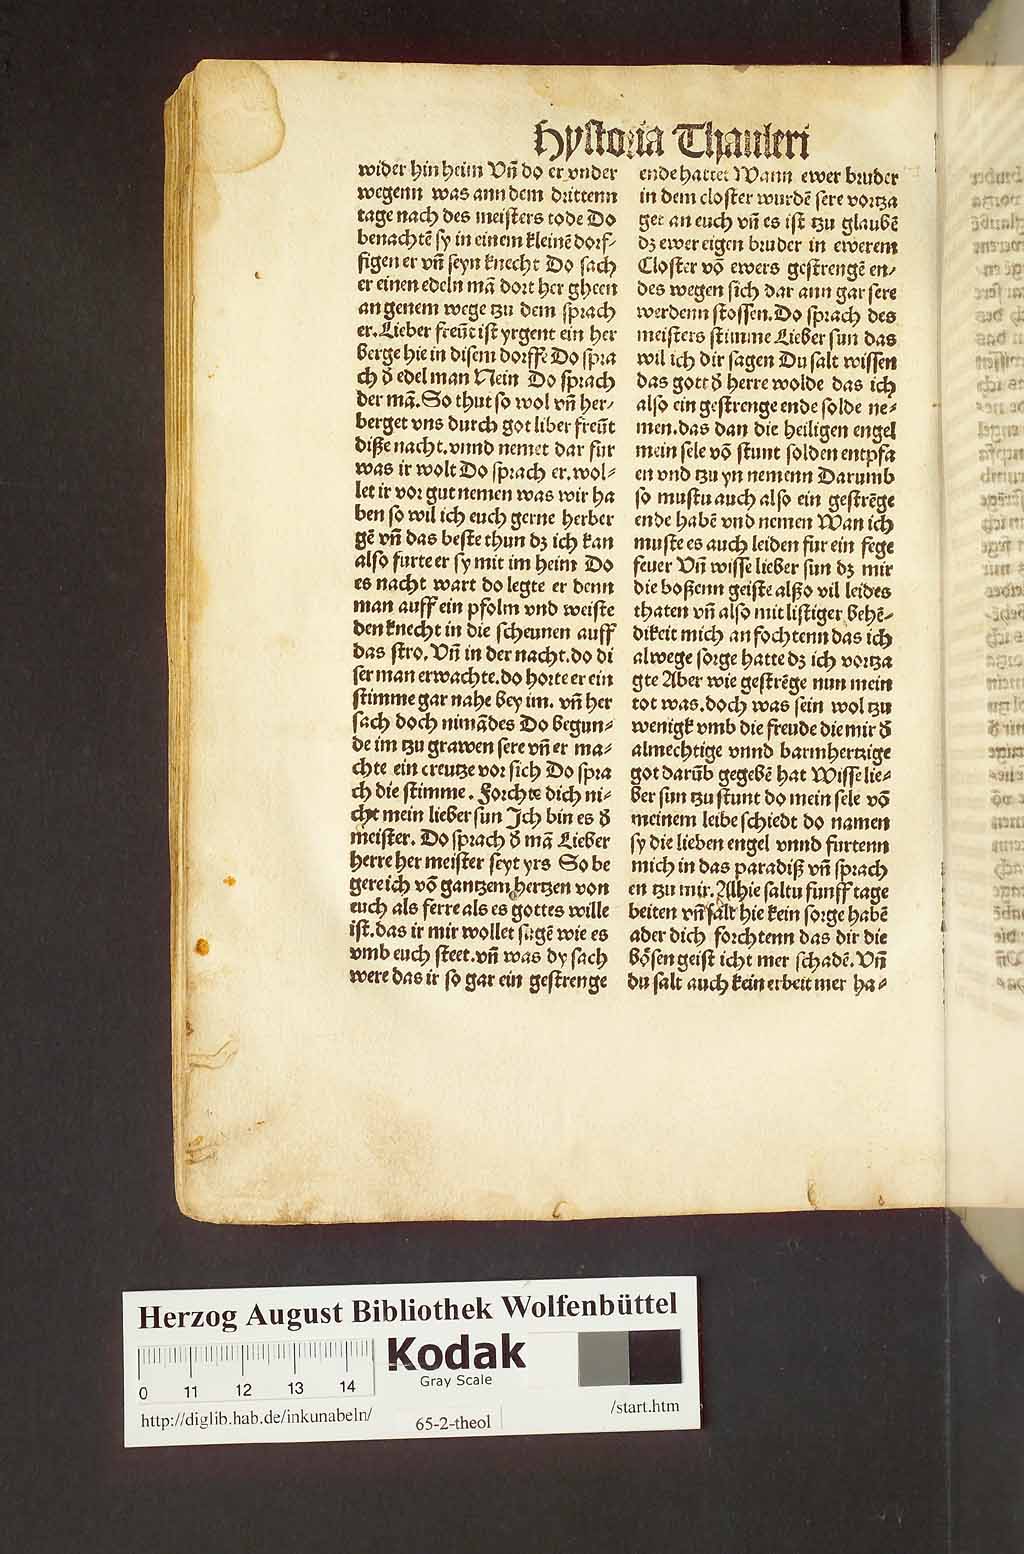 Hystoria Thauleri
wider hin heim Vñ do er vnder
wegenn was ann dem drittenn
tage nach des meisters tode Do
benachtē sy in einem kleinē dorf⸗
figen er vñ seyn knecht Do sach
er einen edeln mā dort her gheen
an genem wege tzu dem sprach
er. Lieber freūt ist yrgent ein her
berge hie in disem dorffe Do spra
ch d̕ edel man Nein Do sprach
der mā. So thut so wol vñ her⸗
berget vns durch got liber freūt
diße nacht. vnnd nemet dar fur
was ir wolt Do sprach er. wol⸗
let ir vor gut nemen was wir ha
ben so wil ich euch gerne herber
gē vñ das beste thun dz ich kan
also furte er sy mit im heim Do
es nacht wart do legte er denn
man auff ein pfolm vnd weiste
den knecht in die scheunen auff
das stro. Vñ in der nacht. do di
ser man erwachte. do horte er ein
stimme gar nahe bey im. vñ her
sach doch nimādes Do begun⸗
de im tzu grawen sere vñ er ma⸗
chte ein creutze vor sich Do spra
ch die stimme. Forchte dich ni⸗
cht mein lieber sun Jch bin es d̕
meister. Do sprach d̕ mā Lieber
herre her meister seyt yrs So be
gere ich vō gantzem hertzen von
euch als ferre als es gottes wille
ist. das ir mir wollet sagē wie es
vmb euch steet. vñ was dy sach
were das ir so gar ein gestrenge
ende hattet Wann ewer bruder
in dem closter wurdē sere vortza
get an euch vñ es ist tzu glaubē
dz ewer eigen bruder in ewerem
Closter vō ewers gestrengē en⸗
des wegen sich dar ann gar sere
werdenn stossen. Do sprach des
meisters stimme Lieber sun das
wil ich dir sagen Du salt wissen
das gott d̕ herre wolde das ich
also ein gestrenge ende solde ne⸗
men. das dan die heiligen engel
mein sele vō stunt solden entpfa
en vnd tzu yn nemenn Darumb
so mustu auch also ein gestrēge
ende habē vnd nemen Wan ich
muste es auch leiden fur ein fege
feuer Vñ wisse lieber sun dz mir
die boßenn geiste alßo vil leides
thaten vñ also mit listiger behē⸗
dikeit mich an fochtenn das ich
alwege sorge hatte dz ich vortza
gte Aber wie gestrēge nun mein
tot was. doch was sein wol tzu
wenigk vmb die freude die mir d̕
almechtige vnnd barmhertzige
got darūb gegebē hat Wisse lie⸗
ber sun tzu stunt do mein sele vō
meinem leibe schiedt do namen
sy die lieben engel vnnd furtenn
mich in das paradiß vñ sprach
en tzu mir. Alhie saltu funff tage
beiten vñ salt hie kein sorge habē
ader dich forchtenn das dir die
bösen geist icht mer schadē. Vñ
du salt auch kein erbeit mer ha⸗
Herzog August Bibliothek Wolfenbüttel
Kodak
Gray Scale
0 11 12 13 14
http://diglib.hab.de/inkunabeln/
65-2-theol
/start.htm